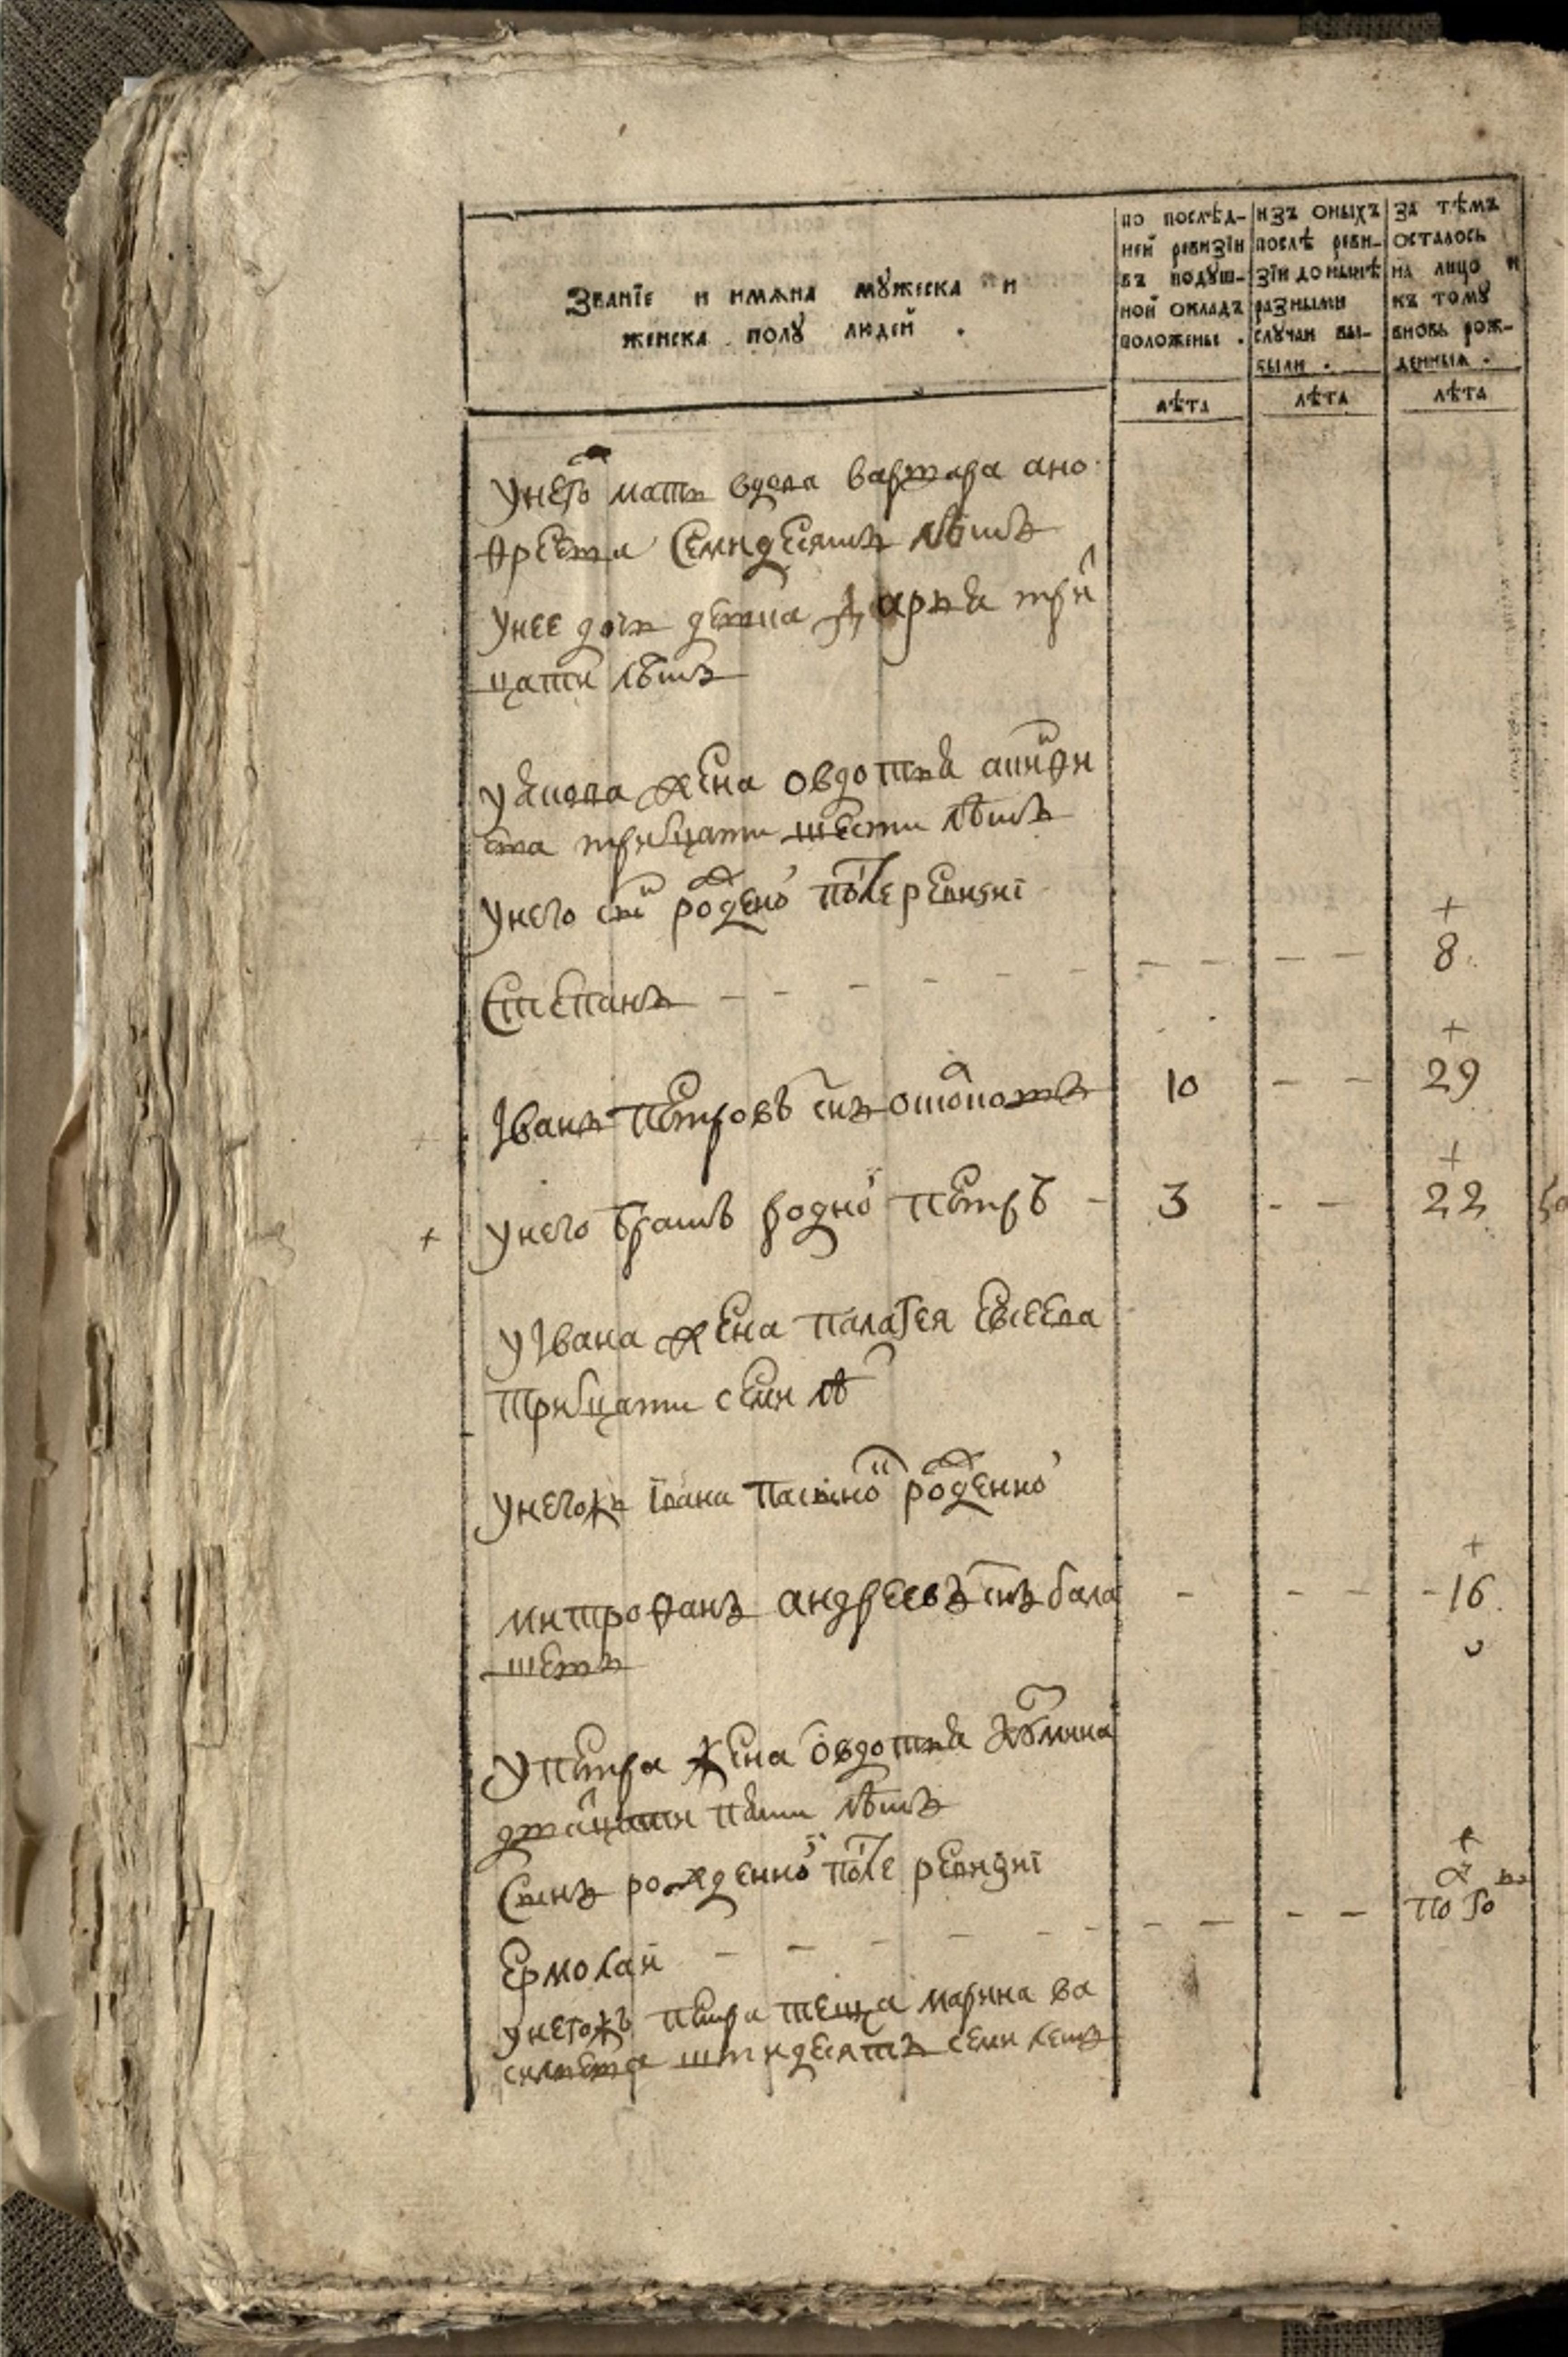 Званїе и имѧна мꙋжеска и
женска полꙋ людей .
по послѣд-
ней ревизїи
въ подꙋш-
ной окладъ
положены .
изъ оныхъ
послѣ реви-
зїи до нынѣ
разными
слꙋчаи вы-
были .
за тѣмъ
осталось
на лицо и
къ томꙋ
вновь рож-
денныѧ .
лѣта
лѣта
лѣта
у него мати вдова варвара ано
фреева семидесятъ лѣтъ
у нее дочь девка дарья три
цати лѣтъ
жена овдотья
трицати шести лѣтъ
у него сынъ рожденой после ревизиі
Степанъ - - - - - - - - - 8
Іванъ петровъ снъ 10 - - 29
у него братъ родной петръ - 3 - - 22
у Івана жена палагея евсеева
трицати семи лѣ
у негожъ івана пасынокъ рожденной
митрофанъ андреевъ снъ бала - - - - 16
шевъ
у петра жена овдотья
дватцати пяти лѣтъ
Сынъ рожденной после ревизиі
Ермолай - - - - - - - - - по го
у негожъ петра теща марина ва
сильева штидесятъ семи летъ